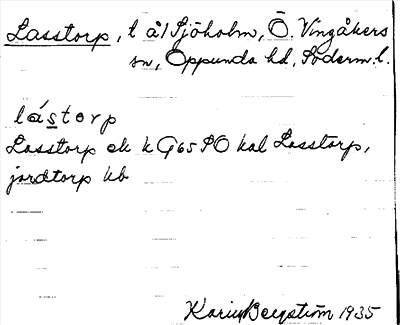 Lasstorp, t å/ Sjöholm, Ö. Vingåkers
sn, Oppunda hd, Söderm. l.
lástorp
Lasstorp ek k G65 SO kal Lasstorp,
jordtorp hb
Karin Bergström 1935